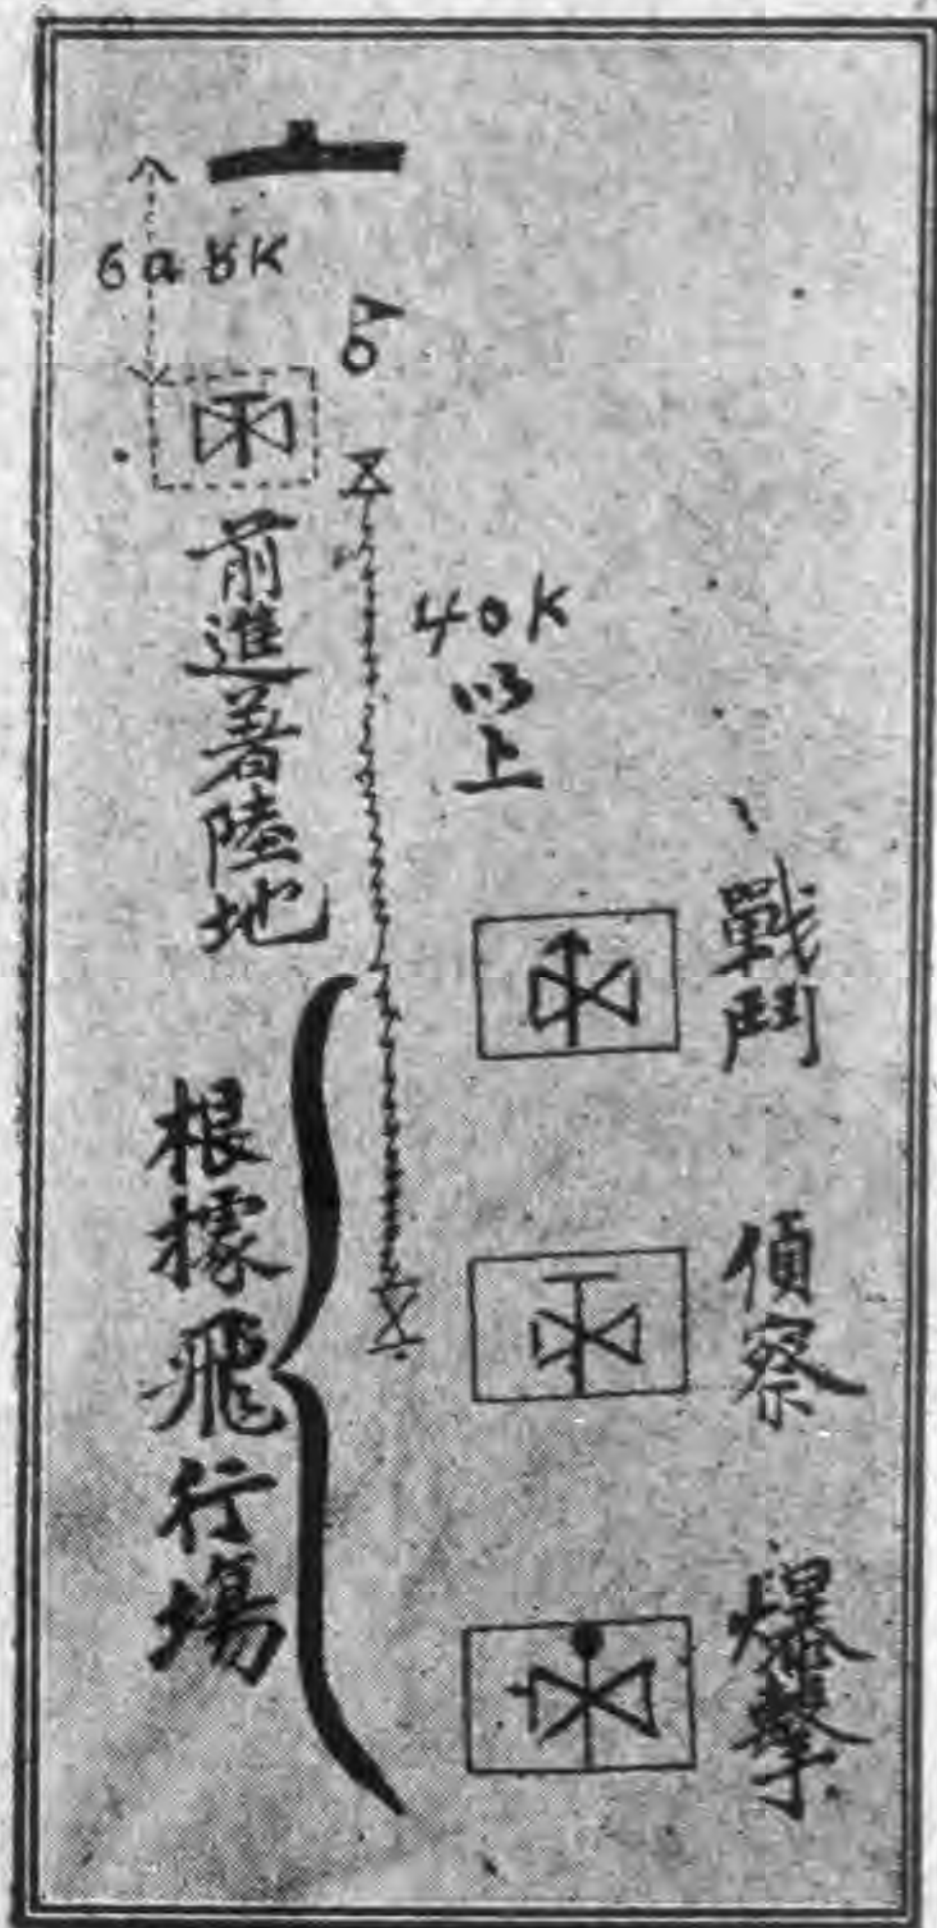 6a8K
前進着陸地
40K
以上
戰鬥
偵察
爆擊
根據飛行場